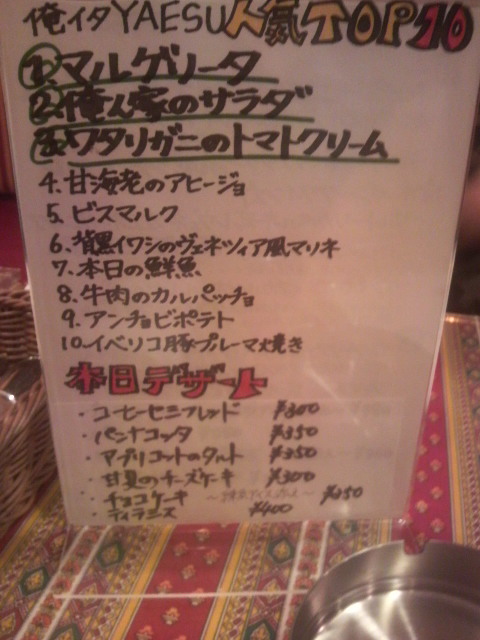 俺イタYAESU人気TOP10
1.マルゲリータ
2.俺ん家のサラダ
3.ワタリガニのトマトクリーム
4.甘海老のアヒージョ
5.ビスマルク
6.背黒イワシのヴェネツィア風マリネ
7.本日の鮮魚
8.牛肉のカルパッチョ
9.アンチョビポテト
10.イベリコ豚プルーマ焼き
本日デザート
・コーヒーセミフレッド ¥300
・パンナコッタ ¥350
・アプリコットのタルト ¥350
・甘夏のチーズケーキ ¥300
・チョコケーキ ¥350
・ティラミス ¥400